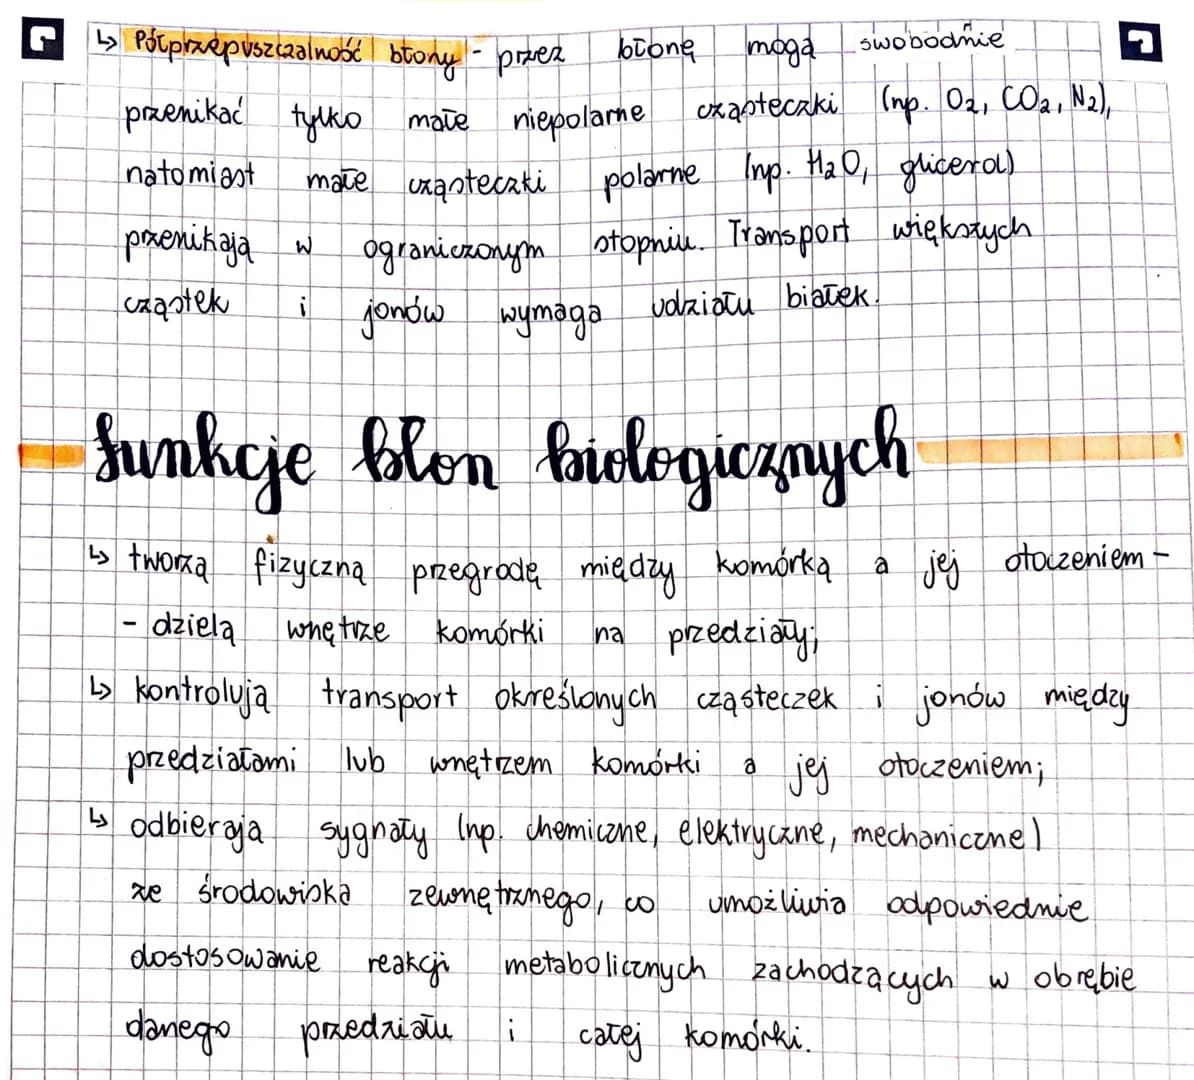 ↳ Półprzepuszczalność błony - przez błonę mogą swobodnie
przenikać tylko małe niepolarne cząsteczki (np. O2, CO2, N2),
natomiast małe cząsteczki polarne (np. H2O, glicerol)
przenikają w ograniczonym stopniu. Transport większych
cząstek i jonów wymaga udziału białek.
funkcje błon biologicznych
↳ tworzą fizyczną przegrodę między komórką a jej otoczeniem -
- dzielą wnętrze komórki na przedziały;
↳ kontrolują transport określonych cząsteczek i jonów między
przedziałami lub wnętrzem komórki a jej otoczeniem;
↳ odbieraja sygnały (np. chemiczne, elektryczne, mechaniczne)
ze środowiska zewnętrznego, co umożliwia odpowiednie
dostosowanie reakcji metabolicznych zachodzących w obrębie
danego przedziału i całej komórki.